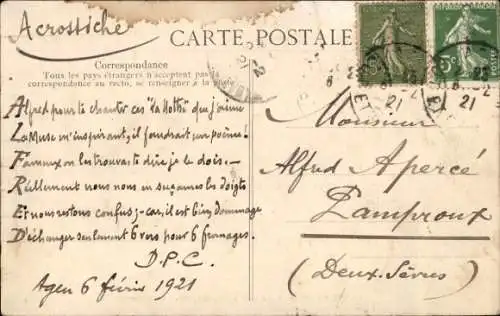 Acrostiche
CARTE POSTALE
Correspondance
Tous les pays étrangers n'acceptent pas la
correspondance au recto, se renseigner à la poste
Alfred pour te chanter ces "la Mothe" que j'aime
La Muse m'inspirant, il faudrait un poème.
Fameux on les trouva te dire je le dois. —
Réellement nous nous en suçames les doigts
Et nous restons confus; car, il est bien dommage
D'échanger seulement 6 vers pour 6 fromages.
D. P. C.
Agen 6 février 1921
Monsieur
Alfred Apercé
Lamproux
(Deux-Sèvres)
5c
21
21